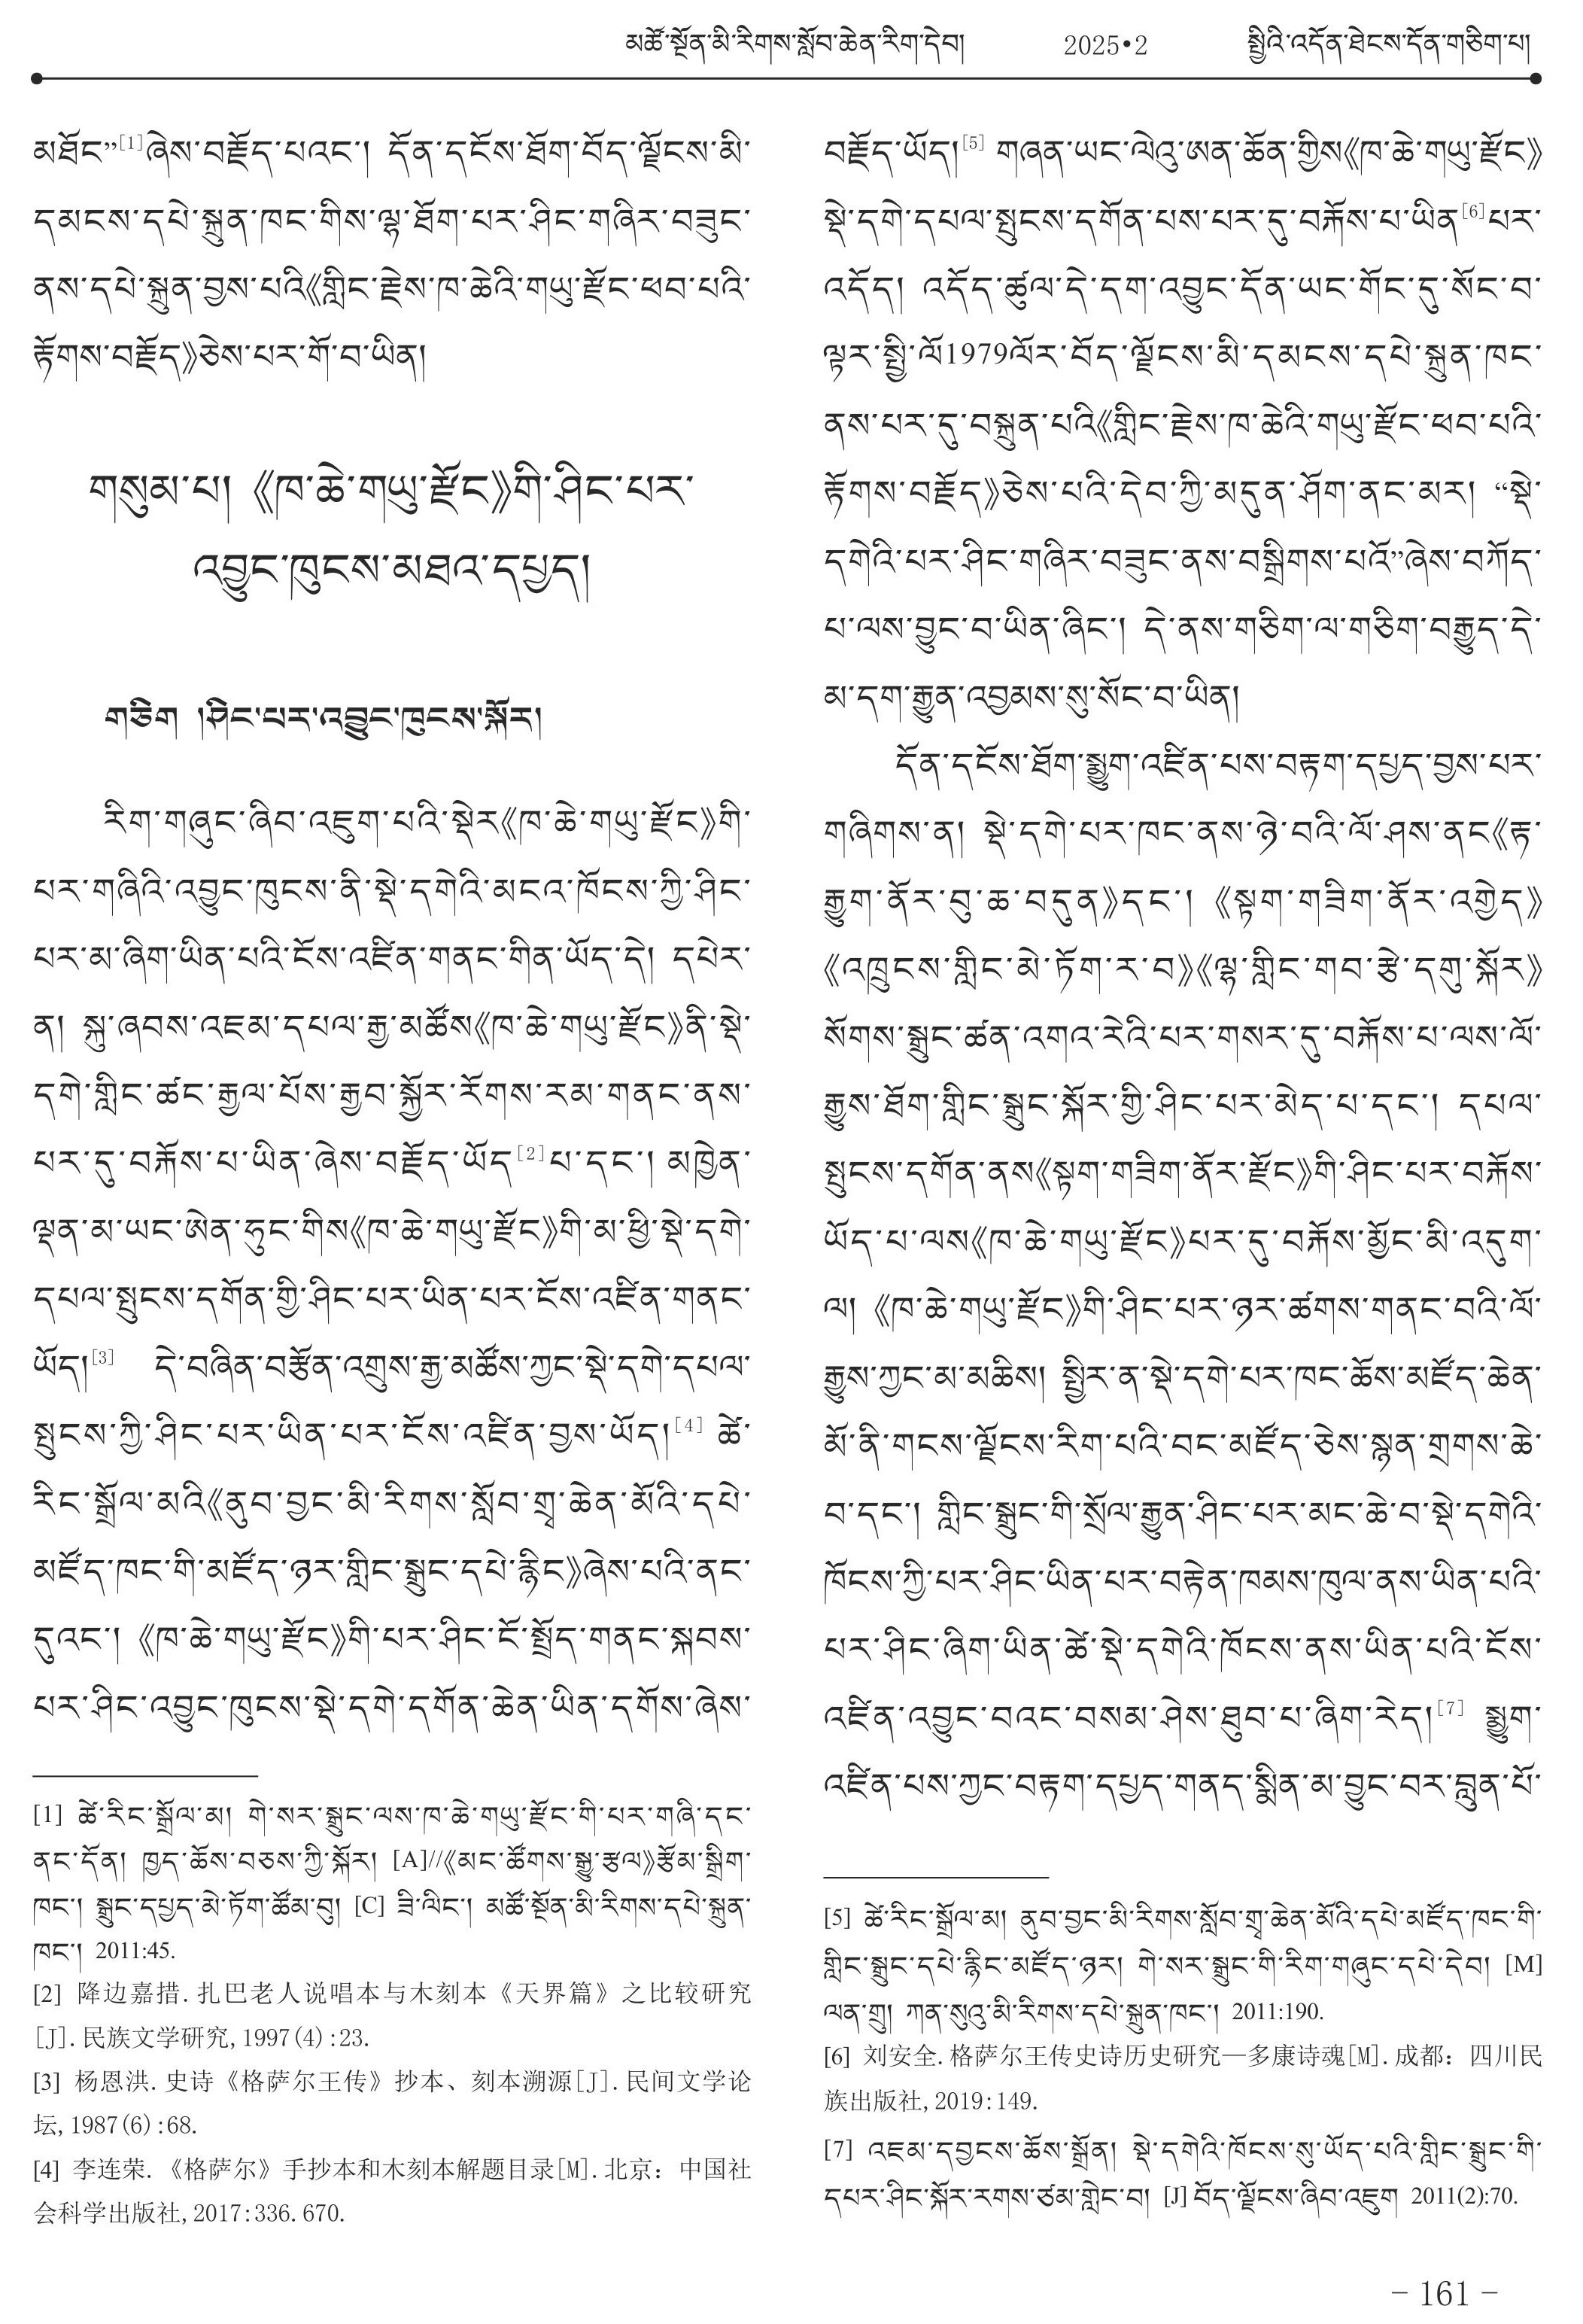 མཚོ་སྔོན་མི་རིགས་སློབ་ཆེན་རིག་དེབ། 2025•2 སྤྱིའི་འདོན་ཐེངས་དོན་གཅིག་པ།
མཐོང”[1]ཞེས་བརྗོད་པའང་། དོན་དངོས་ཐོག་བོད་ལྗོངས་མི་
དམངས་དཔེ་སྐྲུན་ཁང་གིས་ལྷ་ཐོག་པར་ཤིང་གཞིར་བཟུང་
ནས་དཔེ་སྐྲུན་བྱས་པའི《གླིང་རྗེས་ཁ་ཆེའི་གཡུ་རྫོང་ཕབ་པའི་
རྟོགས་བརྗོད》ཅེས་པར་གོ་བ་ཡིན།
གསུམ་པ། 《ཁ་ཆེ་གཡུ་རྫོང》གི་ཤིང་པར་
འབྱུང་ཁུངས་མཐའ་དཔྱད།
གཅིག །ཤིང་པར་འབྱུང་ཁུངས་སྐོར།
རིག་གཞུང་ཞིབ་འཇུག་པའི་སྡེར《ཁ་ཆེ་གཡུ་རྫོང》གི་
པར་གཞིའི་འབྱུང་ཁུངས་ནི་སྡེ་དགེའི་མངའ་ཁོངས་ཀྱི་ཤིང་
པར་མ་ཞིག་ཡིན་པའི་ངོས་འཛིན་གནང་གིན་ཡོད་དེ། དཔེར་
ན། སྐུ་ཞབས་འཇམ་དཔལ་རྒྱ་མཚོས《ཁ་ཆེ་གཡུ་རྫོང》ནི་སྡེ་
དགེ་གླིང་ཚང་རྒྱལ་པོས་རྒྱབ་སྐྱོར་རོགས་རམ་གནང་ནས་
པར་དུ་བརྐོས་པ་ཡིན་ཞེས་བརྗོད་ཡོད[2]པ་དང་། མཁྱེན་
ལྡན་མ་ཡང་ཨེན་ཧུང་གིས《ཁ་ཆེ་གཡུ་རྫོང》གི་མ་ཕྱི་སྡེ་དགེ་
དཔལ་སྤུངས་དགོན་གྱི་ཤིང་པར་ཡིན་པར་ངོས་འཛིན་གནང་
ཡོད།[3] དེ་བཞིན་བརྩོན་འགྲུས་རྒྱ་མཚོས་ཀྱང་སྡེ་དགེ་དཔལ་
སྤུངས་ཀྱི་ཤིང་པར་ཡིན་པར་ངོས་འཛིན་བྱས་ཡོད།[4] ཚེ་
རིང་སྒྲོལ་མའི《ནུབ་བྱང་མི་རིགས་སློབ་གྲྭ་ཆེན་མོའི་དཔེ་
མཛོད་ཁང་གི་མཛོད་ཉར་གླིང་སྒྲུང་དཔེ་རྙིང》ཞེས་པའི་ནང་
དུའང་། 《ཁ་ཆེ་གཡུ་རྫོང》གི་པར་ཤིང་ངོ་སྤྲོད་གནང་སྐབས་
པར་ཤིང་འབྱུང་ཁུངས་སྡེ་དགེ་དགོན་ཆེན་ཡིན་དགོས་ཞེས་
[1] ཚེ་རིང་སྒྲོལ་མ། གེ་སར་སྒྲུང་ལས་ཁ་ཆེ་གཡུ་རྫོང་གི་པར་གཞི་དང་
ནང་དོན། ཁྱད་ཆོས་བཅས་ཀྱི་སྐོར། [A]//《མང་ཚོགས་སྒྱུ་རྩལ》རྩོམ་སྒྲིག་
ཁང་། སྒྲུང་དཔྱད་མེ་ཏོག་ཚོམ་བུ། [C] ཟི་ལིང་། མཚོ་སྔོན་མི་རིགས་དཔེ་སྐྲུན་
ཁང་། 2011:45.
[2] 降边嘉措.扎巴老人说唱本与木刻本《天界篇》之比较研究
[J].民族文学研究,1997(4):23.
[3] 杨恩洪.史诗《格萨尔王传》抄本、刻本溯源[J].民间文学论
坛,1987(6):68.
[4] 李连荣.《格萨尔》手抄本和木刻本解题目录[M].北京：中国社
会科学出版社,2017:336.670.
བརྗོད་ཡོད།[5] གཞན་ཡང་ལེའུ་ཨན་ཆོན་གྱིས《ཁ་ཆེ་གཡུ་རྫོང》
སྡེ་དགེ་དཔལ་སྤུངས་དགོན་པས་པར་དུ་བརྐོས་པ་ཡིན[6]པར་
འདོད། འདོད་ཚུལ་དེ་དག་འབྱུང་དོན་ཡང་གོང་དུ་སོང་བ་
ལྟར་སྤྱི་ལོ1979ལོར་བོད་ལྗོངས་མི་དམངས་དཔེ་སྐྲུན་ཁང་
ནས་པར་དུ་བསྐྲུན་པའི《གླིང་རྗེས་ཁ་ཆེའི་གཡུ་རྫོང་ཕབ་པའི་
རྟོགས་བརྗོད》ཅེས་པའི་དེབ་ཀྱི་མདུན་ཤོག་ནང་མར། “སྡེ་
དགེའི་པར་ཤིང་གཞིར་བཟུང་ནས་བསྒྲིགས་པའོ”ཞེས་བཀོད་
པ་ལས་བྱུང་བ་ཡིན་ཞིང་། དེ་ནས་གཅིག་ལ་གཅིག་བརྒྱུད་དེ་
མ་དག་རྒྱུན་འབྱམས་སུ་སོང་བ་ཡིན།
དོན་དངོས་ཐོག་སྨྱུག་འཛིན་པས་བརྟག་དཔྱད་བྱས་པར་
གཞིགས་ན། སྡེ་དགེ་པར་ཁང་ནས་ཉེ་བའི་ལོ་ཤས་ནང《རྟ་
རྒྱུག་ནོར་བུ་ཆ་བདུན》དང་། 《སྟག་གཟིག་ནོར་འགྱེད》
《འཁྲུངས་གླིང་མེ་ཏོག་ར་བ》《ལྷ་གླིང་གབ་རྩེ་དགུ་སྐོར》
སོགས་སྒྲུང་ཚན་འགའ་རེའི་པར་གསར་དུ་བརྐོས་པ་ལས་ལོ་
རྒྱུས་ཐོག་གླིང་སྒྲུང་སྐོར་གྱི་ཤིང་པར་མེད་པ་དང་། དཔལ་
སྤུངས་དགོན་ནས《སྟག་གཟིག་ནོར་རྫོང》གི་ཤིང་པར་བརྐོས་
ཡོད་པ་ལས《ཁ་ཆེ་གཡུ་རྫོང》པར་དུ་བརྐོས་མྱོང་མི་འདུག་
ལ། 《ཁ་ཆེ་གཡུ་རྫོང》གི་ཤིང་པར་ཉར་ཚགས་གནང་བའི་ལོ་
རྒྱུས་ཀྱང་མ་མཆིས། སྤྱིར་ན་སྡེ་དགེ་པར་ཁང་ཆོས་མཛོད་ཆེན་
མོ་ནི་གངས་ལྗོངས་རིག་པའི་བང་མཛོད་ཅེས་སྙན་གྲགས་ཆེ་
བ་དང་། གླིང་སྒྲུང་གི་སྲོལ་རྒྱུན་ཤིང་པར་མང་ཆེ་བ་སྡེ་དགེའི་
ཁོངས་ཀྱི་པར་ཤིང་ཡིན་པར་བརྟེན་ཁམས་ཁུལ་ནས་ཡིན་པའི་
པར་ཤིང་ཞིག་ཡིན་ཚེ་སྡེ་དགེའི་ཁོངས་ནས་ཡིན་པའི་ངོས་
འཛིན་འབྱུང་བའང་བསམ་ཤེས་ཐུབ་པ་ཞིག་རེད།[7] སྨྱུག་
འཛིན་པས་ཀྱང་བརྟག་དཔྱད་གནད་སྨིན་མ་བྱུང་བར་བླུན་པོ་
[5] ཚེ་རིང་སྒྲོལ་མ། ནུབ་བྱང་མི་རིགས་སློབ་གྲྭ་ཆེན་མོའི་དཔེ་མཛོད་ཁང་གི་
གླིང་སྒྲུང་དཔེ་རྙིང་མཛོད་ཉར། གེ་སར་སྒྲུང་གི་རིག་གཞུང་དཔེ་དེབ། [M]
ལན་གྲུ། ཀན་སུའུ་མི་རིགས་དཔེ་སྐྲུན་ཁང་། 2011:190.
[6] 刘安全.格萨尔王传史诗历史研究—多康诗魂[M].成都：四川民
族出版社,2019:149.
[7] འཇམ་དབྱངས་ཆོས་སྒྲོན། སྡེ་དགེའི་ཁོངས་སུ་ཡོད་པའི་གླིང་སྒྲུང་གི་
དཔར་ཤིང་སྐོར་རགས་ཙམ་གླེང་བ། [J] བོད་ལྗོངས་ཞིབ་འཇུག 2011(2):70.
- 161 -